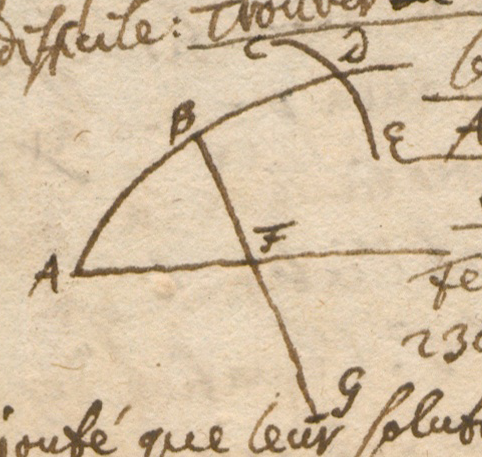 difficile: Trouver
C D
B
E A
A F
fe
230
jouté que leur solut
G